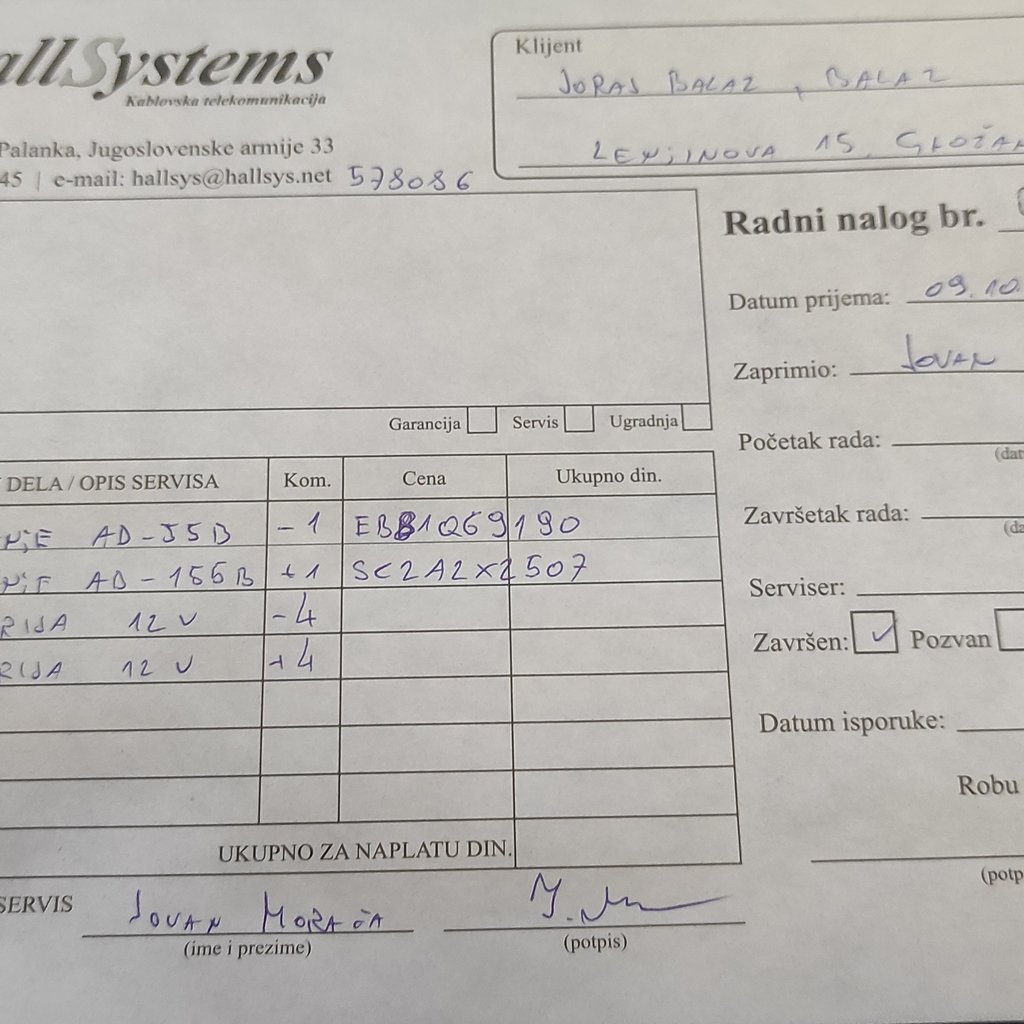 allSystems
Kablovska telekomunikacija
Palanka, Jugoslovenske armije 33
45 | e-mail: hallsys@hallsys.net 578086
Klijent
JORAS BALAZ, BALAZ
LENJINOVA 15, GLOŽAN
Radni nalog br.
Datum prijema: 09.10.
Zaprimio: JOVAN
Početak rada:
(dat
Završetak rada:
(da
Serviser:
Završen: ✓ Pozvan
Datum isporuke:
Robu
(potp
Garancija Servis Ugradnja
DELA / OPIS SERVISA Kom. Cena Ukupno din.
NJE AD-55B -1 EBB1Q69190
NJE AD-155B +1 SC2A2X2507
RIJA 12 V -4
RIJA 12 V +4
UKUPNO ZA NAPLATU DIN.
SERVIS JOVAN MORAČA
(ime i prezime) (potpis)